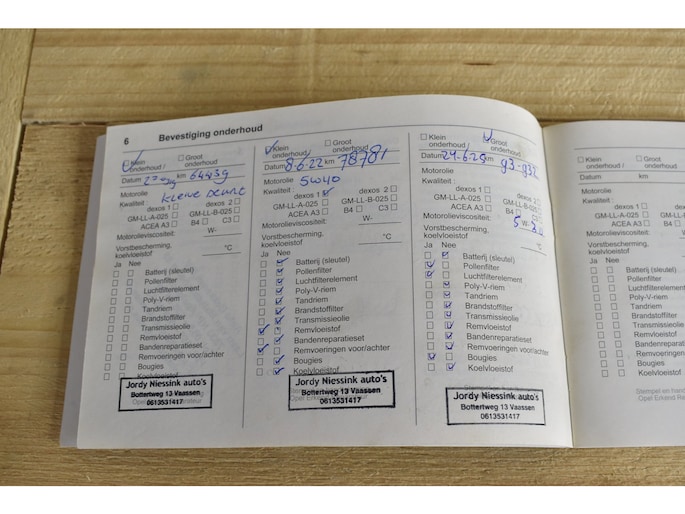 6 Bevestiging onderhoud
Klein onderhoud /
Groot onderhoud
Datum km 64439
Motorolie
Kwaliteit kleine beurt
dexos 1 dexos 2
GM-LL-A-025 GM-LL-B-025
ACEA A3 B4 C3
Motorolieviscositeit: W-
Vorstbescherming, koelvloeistof °C
Ja Nee
Batterij (sleutel)
Pollenfilter
Luchtfilterelement
Poly-V-riem
Tandriem
Brandstoffilter
Transmissieolie
Remvloeistof
Bandenreparatieset
Remvoeringen voor/achter
Bougies
Koelvloeistof
Jordy Niessink auto's
Bottertweg 13 Vaassen
0613531417
Klein onderhoud /
Groot onderhoud
Datum 8-6-22 km 78781
Motorolie 5W40
Kwaliteit
dexos 1 dexos 2
GM-LL-A-025 GM-LL-B-025
ACEA A3 B4 C3
Motorolieviscositeit: W-
Vorstbescherming, koelvloeistof °C
Ja Nee
Batterij (sleutel)
Pollenfilter
Luchtfilterelement
Poly-V-riem
Tandriem
Brandstoffilter
Transmissieolie
Remvloeistof
Bandenreparatieset
Remvoeringen voor/achter
Bougies
Koelvloeistof
Jordy Niessink auto's
Bottertweg 13 Vaassen
0613531417
Klein onderhoud /
Groot onderhoud
Datum km
Motorolie
Kwaliteit
dexos 1 dexos 2
GM-LL-A-025 GM-LL-B-025
ACEA A3 B4 C3
Motorolieviscositeit: W-
Vorstbescherming, koelvloeistof °C
Ja Nee
Batterij (sleutel)
Pollenfilter
Luchtfilterelement
Poly-V-riem
Tandriem
Brandstoffilter
Transmissieolie
Remvloeistof
Bandenreparatieset
Remvoeringen voor/achter
Bougies
Koelvloeistof
Jordy Niessink auto's
Bottertweg 13 Vaassen
0613531417
Klein onderhoud /
Datum
Motorolie
Kwaliteit
GM-LL-A-025
ACEA A3
Motorolieviscositeit:
Vorstbescherming, koelvloeistof
Ja Nee
Batterij (sleutel)
Pollenfilter
Luchtfilterelement
Poly-V-riem
Tandriem
Brandstoffilter
Transmissieolie
Remvloeistof
Bandenreparatieset
Remvoeringen
Bougies
Koelvloeistof